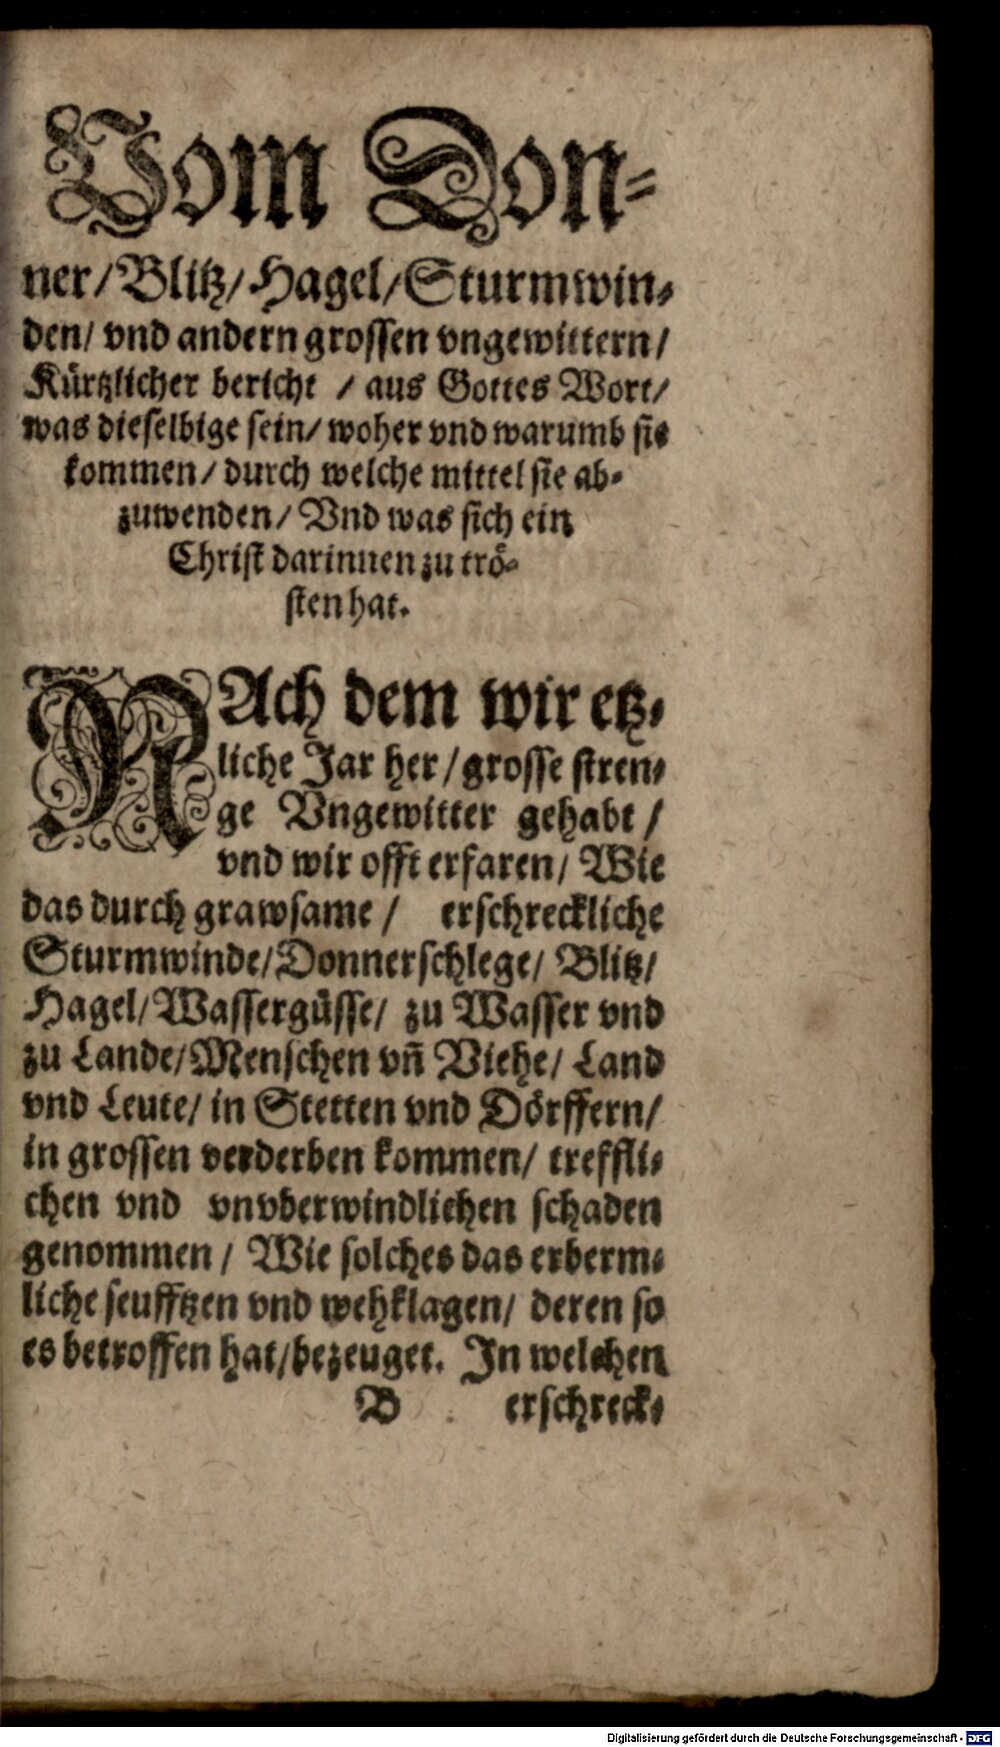 Vom Don-
ner/ Blitz/ Hagel/ Sturmwin-
den/ vnd andern grossen vngewittern/
Kürtzlicher bericht / aus Gottes Wort/
was dieselbige sein/ woher vnd warumb sie
kommen/ durch welche mittel sie ab-
zuwenden/ Vnd was sich ein
Christ darinnen zu trö-
sten hat.
NAch dem wir etz-
liche Jar her/ grosse stren-
ge Vngewitter gehabt /
vnd wir offt erfaren/ Wie
das durch grawsame / erschreckliche
Sturmwinde/ Donnerschlege/ Blitz/
Hagel/ Wassergüsse/ zu Wasser vnd
zu Lande/ Menschen vñ Viehe/ Land
vnd Leute/ in Stetten vnd Dörffern/
in grossen verderben kommen/ treffli-
chen vnd vnvberwindlichen schaden
genommen / Wie solches das erberm-
liche seufftzen vnd wehklagen/ deren so
es betroffen hat/ bezeuget. In welchen
B erschreck-
Digitalisierung gefördert durch die Deutsche Forschungsgemeinschaft - DFG